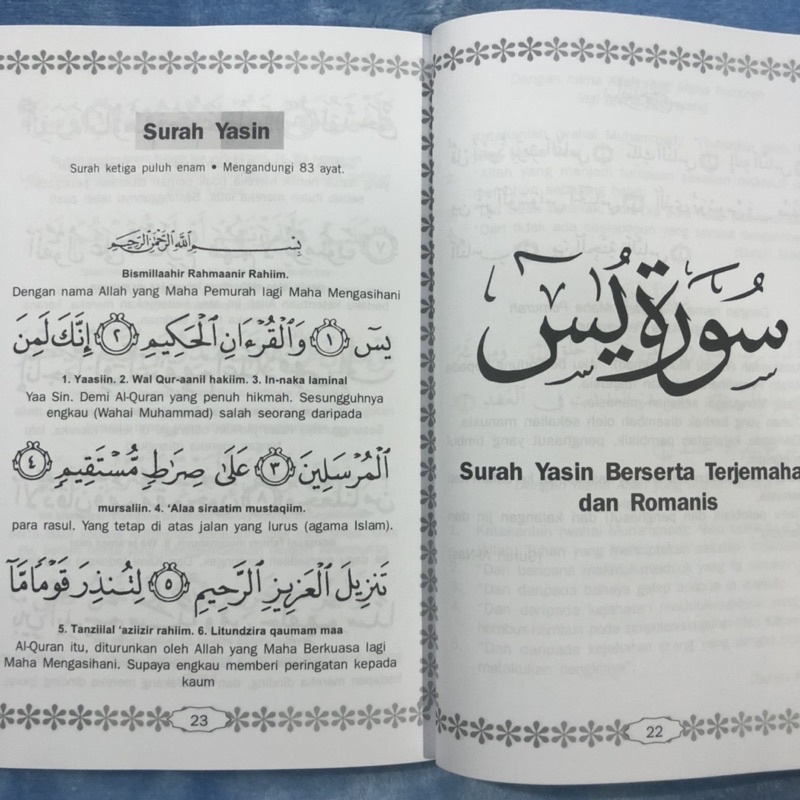 سُورَةُ يٓسٓ
Surah Yasin Berserta Terjemaha
dan Romanis
22
Surah Yasin
Surah ketiga puluh enam • Mengandungi 83 ayat.
بِسْمِ ٱللَّهِ ٱلرَّحْمَٰنِ ٱلرَّحِيمِ
Bismillaahir Rahmaanir Rahiim.
Dengan nama Allah yang Maha Pemurah lagi Maha Mengasihani
يسٓ ١ وَٱلْقُرْءَانِ ٱلْحَكِيمِ ٢ إِنَّكَ لَمِنَ
1. Yaasiin. 2. Wal Qur-aanil hakiim. 3. In-naka laminal
Yaa Sin. Demi Al-Quran yang penuh hikmah. Sesungguhnya
engkau (Wahai Muhammad) salah seorang daripada
ٱلْمُرْسَلِينَ ٣ عَلَىٰ صِرَٰطٍ مُّسْتَقِيمٍ ٤
mursaliin. 4. ‘Alaa siraatim mustaqiim.
para rasul. Yang tetap di atas jalan yang lurus (agama Islam).
تَنزِيلَ ٱلْعَزِيزِ ٱلرَّحِيمِ ٥ لِتُنذِرَ قَوْمًا مَّآ
5. Tanziilal ‘aziizir rahiim. 6. Litundzira qaumam maa
Al-Quran itu, diturunkan oleh Allah yang Maha Berkuasa lagi
Maha Mengasihani. Supaya engkau memberi peringatan kepada
kaum
23